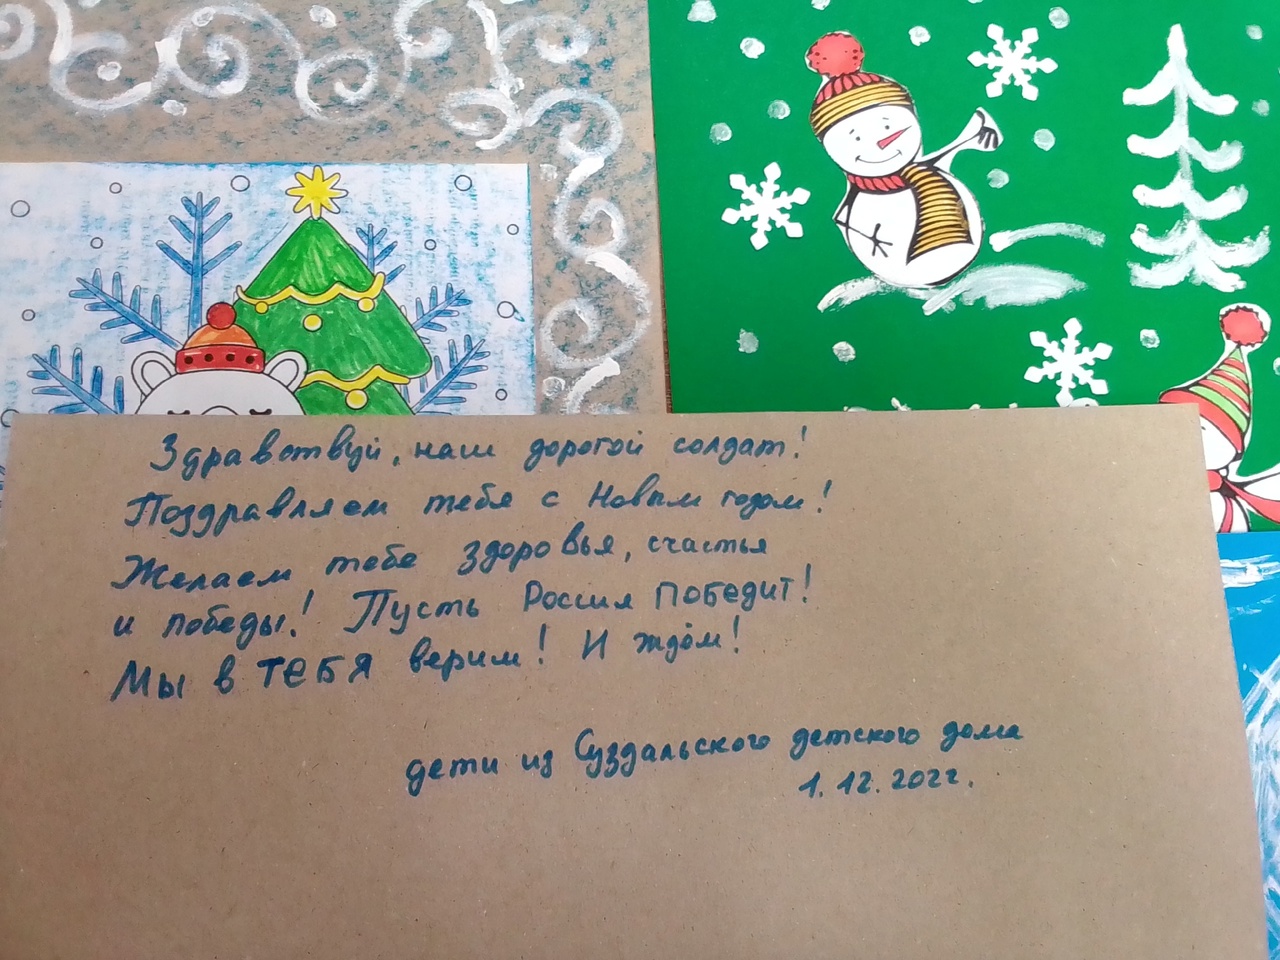 Здравствуй, наш дорогой солдат!
Поздравляем тебя с Новым годом!
Желаем тебе здоровья, счастья
и победы! Пусть Россия ПОБЕДИТ!
Мы в ТЕБЯ верим! И ждём!
дети из Суздальского детского дома
1.12.2022г.